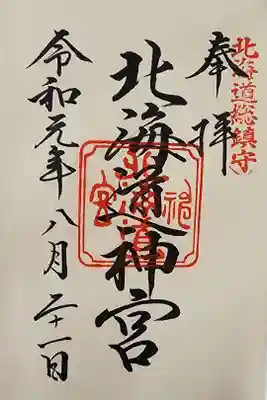 北海道総鎮守
奉拝
北海道神宮
令和元年八月二十一日